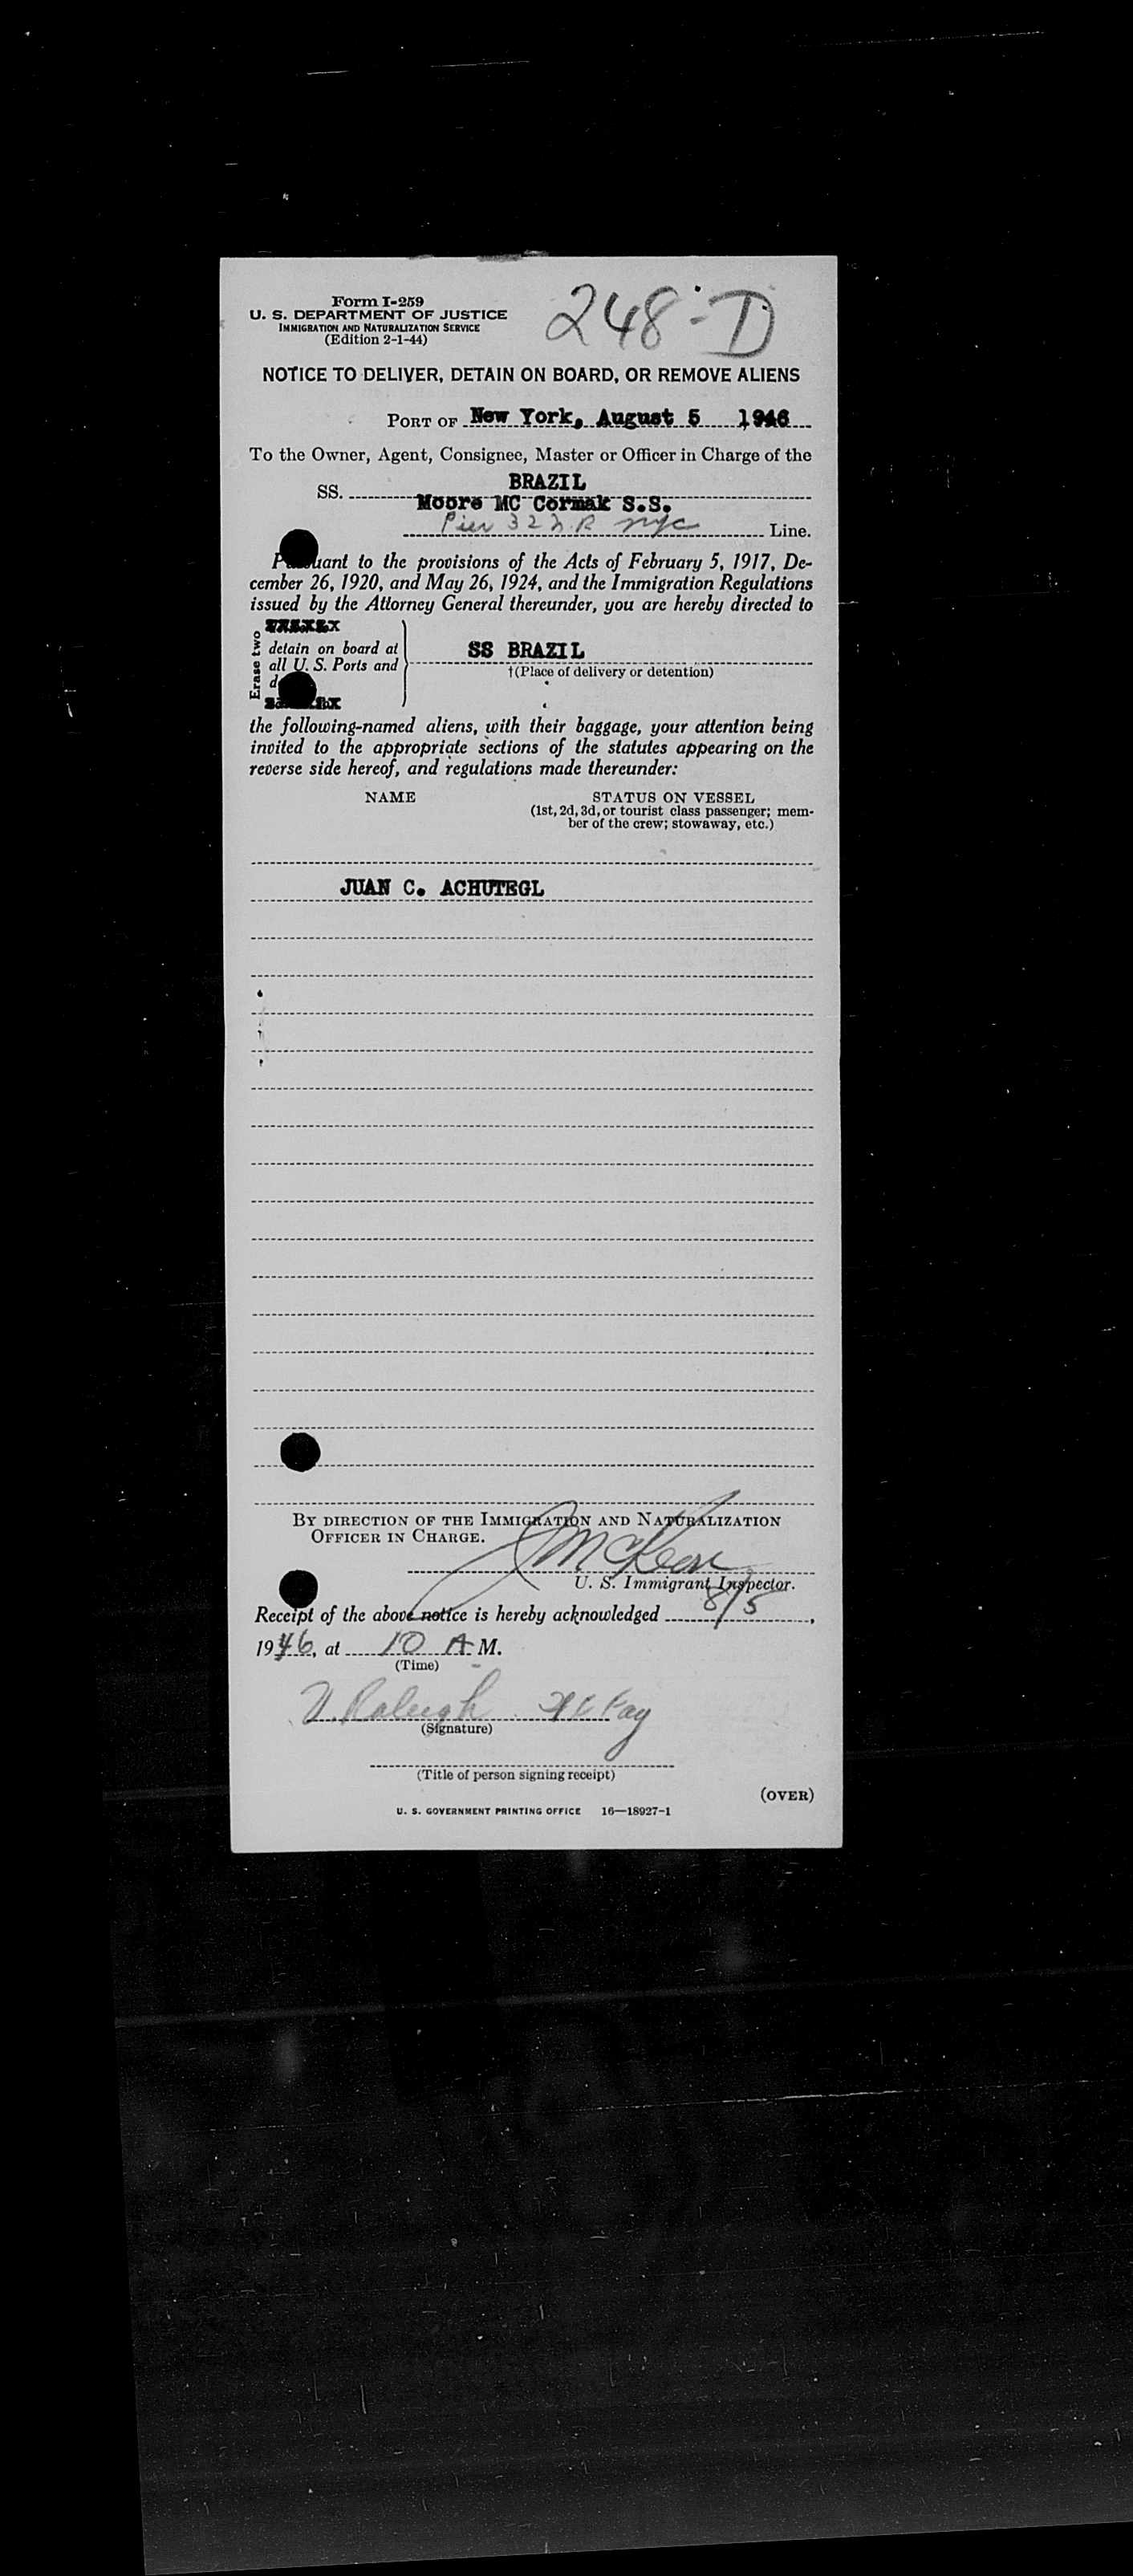 Form I-259
U. S. DEPARTMENT OF JUSTICE
IMMIGRATION AND NATURALIZATION SERVICE
(Edition 2-1-44)
248-D
NOTICE TO DELIVER, DETAIN ON BOARD, OR REMOVE ALIENS
PORT OF New York, August 5 1946
To the Owner, Agent, Consignee, Master or Officer in Charge of the
SS. BRAZIL
Moore MC Cormak S.S.
Pier 32 N.R nyc Line.
Pursuant to the provisions of the Acts of February 5, 1917, De-
cember 26, 1920, and May 26, 1924, and the Immigration Regulations
issued by the Attorney General thereunder, you are hereby directed to
Erase two
detain on board at
all U. S. Ports and
SS BRAZIL
†(Place of delivery or detention)
the following-named aliens, with their baggage, your attention being
invited to the appropriate sections of the statutes appearing on the
reverse side hereof, and regulations made thereunder:
NAME
STATUS ON VESSEL
(1st, 2d, 3d, or tourist class passenger; mem-
ber of the crew; stowaway, etc.)
JUAN C. ACHUTEGL
BY DIRECTION OF THE IMMIGRATION AND NATURALIZATION
OFFICER IN CHARGE.
U. S. Immigrant Inspector.
Receipt of the above notice is hereby acknowledged 8/5,
1946, at 10 A M.
(Time)
Raleigh
(Signature)
(Title of person signing receipt)
(OVER)
U. S. GOVERNMENT PRINTING OFFICE 16—18927-1